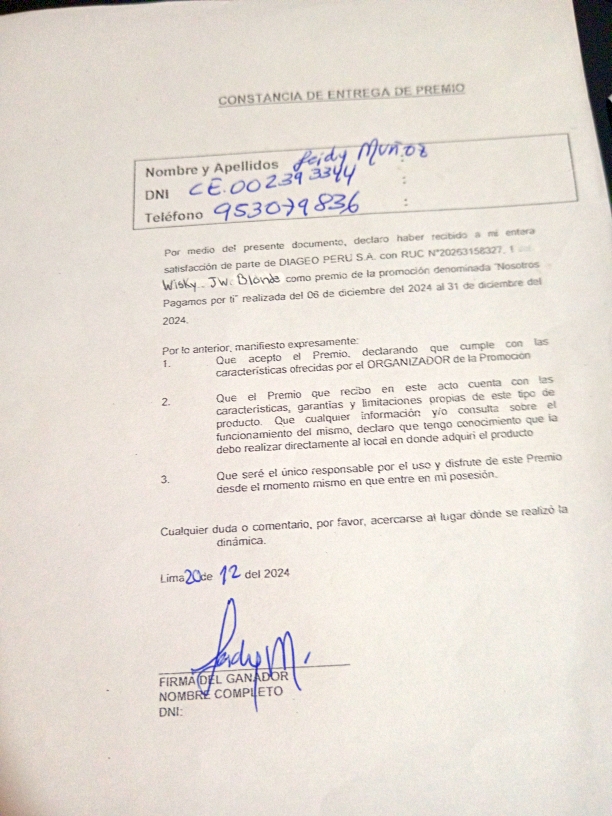 CONSTANCIA DE ENTREGA DE PREMIO
Nombre y Apellidos Leidy Muñoz
DNI CE.002393344 :
Teléfono 953079836 :
Por medio del presente documento, declaro haber recibido a mi entera
satisfacción de parte de DIAGEO PERU S.A. con RUC N°20263158327, 1
Wisky JW. Blonde como premio de la promoción denominada "Nosotros
Pagamos por ti" realizada del 06 de diciembre del 2024 al 31 de diciembre del
2024.
Por lo anterior, manifiesto expresamente:
1. Que acepto el Premio, declarando que cumple con las
características ofrecidas por el ORGANIZADOR de la Promoción
2. Que el Premio que recibo en este acto cuenta con las
características, garantías y limitaciones propias de este tipo de
producto. Que cualquier información y/o consulta sobre el
funcionamiento del mismo, declaro que tengo conocimiento que la
debo realizar directamente al local en donde adquirí el producto
3. Que seré el único responsable por el uso y disfrute de este Premio
desde el momento mismo en que entre en mi posesión.
Cualquier duda o comentario, por favor, acercarse al lugar dónde se realizó la
dinámica.
Lima 20 de 12 del 2024
Leidy M.
FIRMA DEL GANADOR
NOMBRE COMPLETO
DNI: